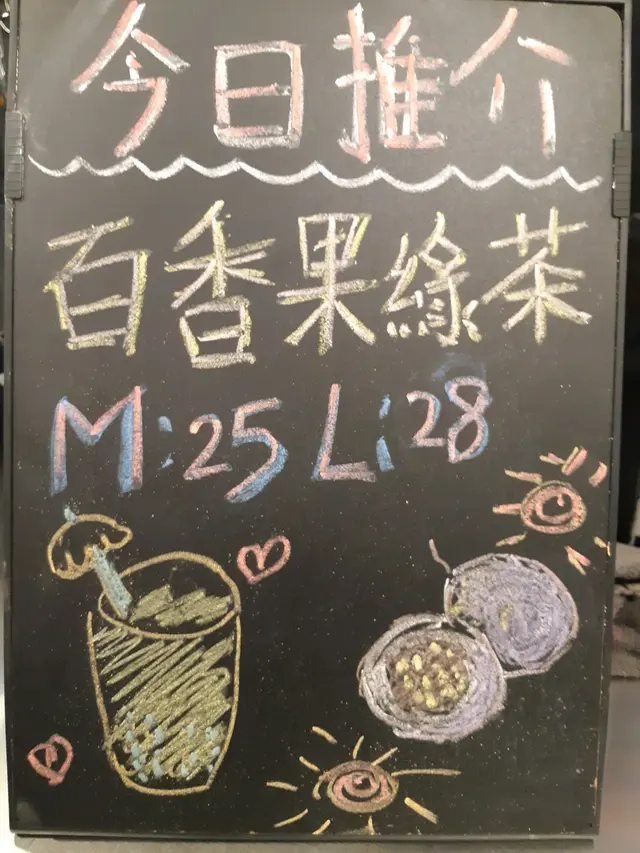 今日推介
百香果綠茶
M:25 L:28